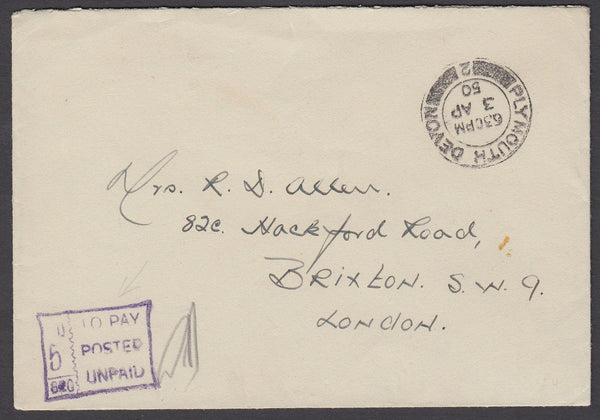 PLYMOUTH DEVON
630PM
3 AP
50
2
Mrs. R. D. Allen.
82c. Hackford Road,
BRIXTON. S.W.9.
LONDON.
TO PAY
5 POSTED
UNPAID